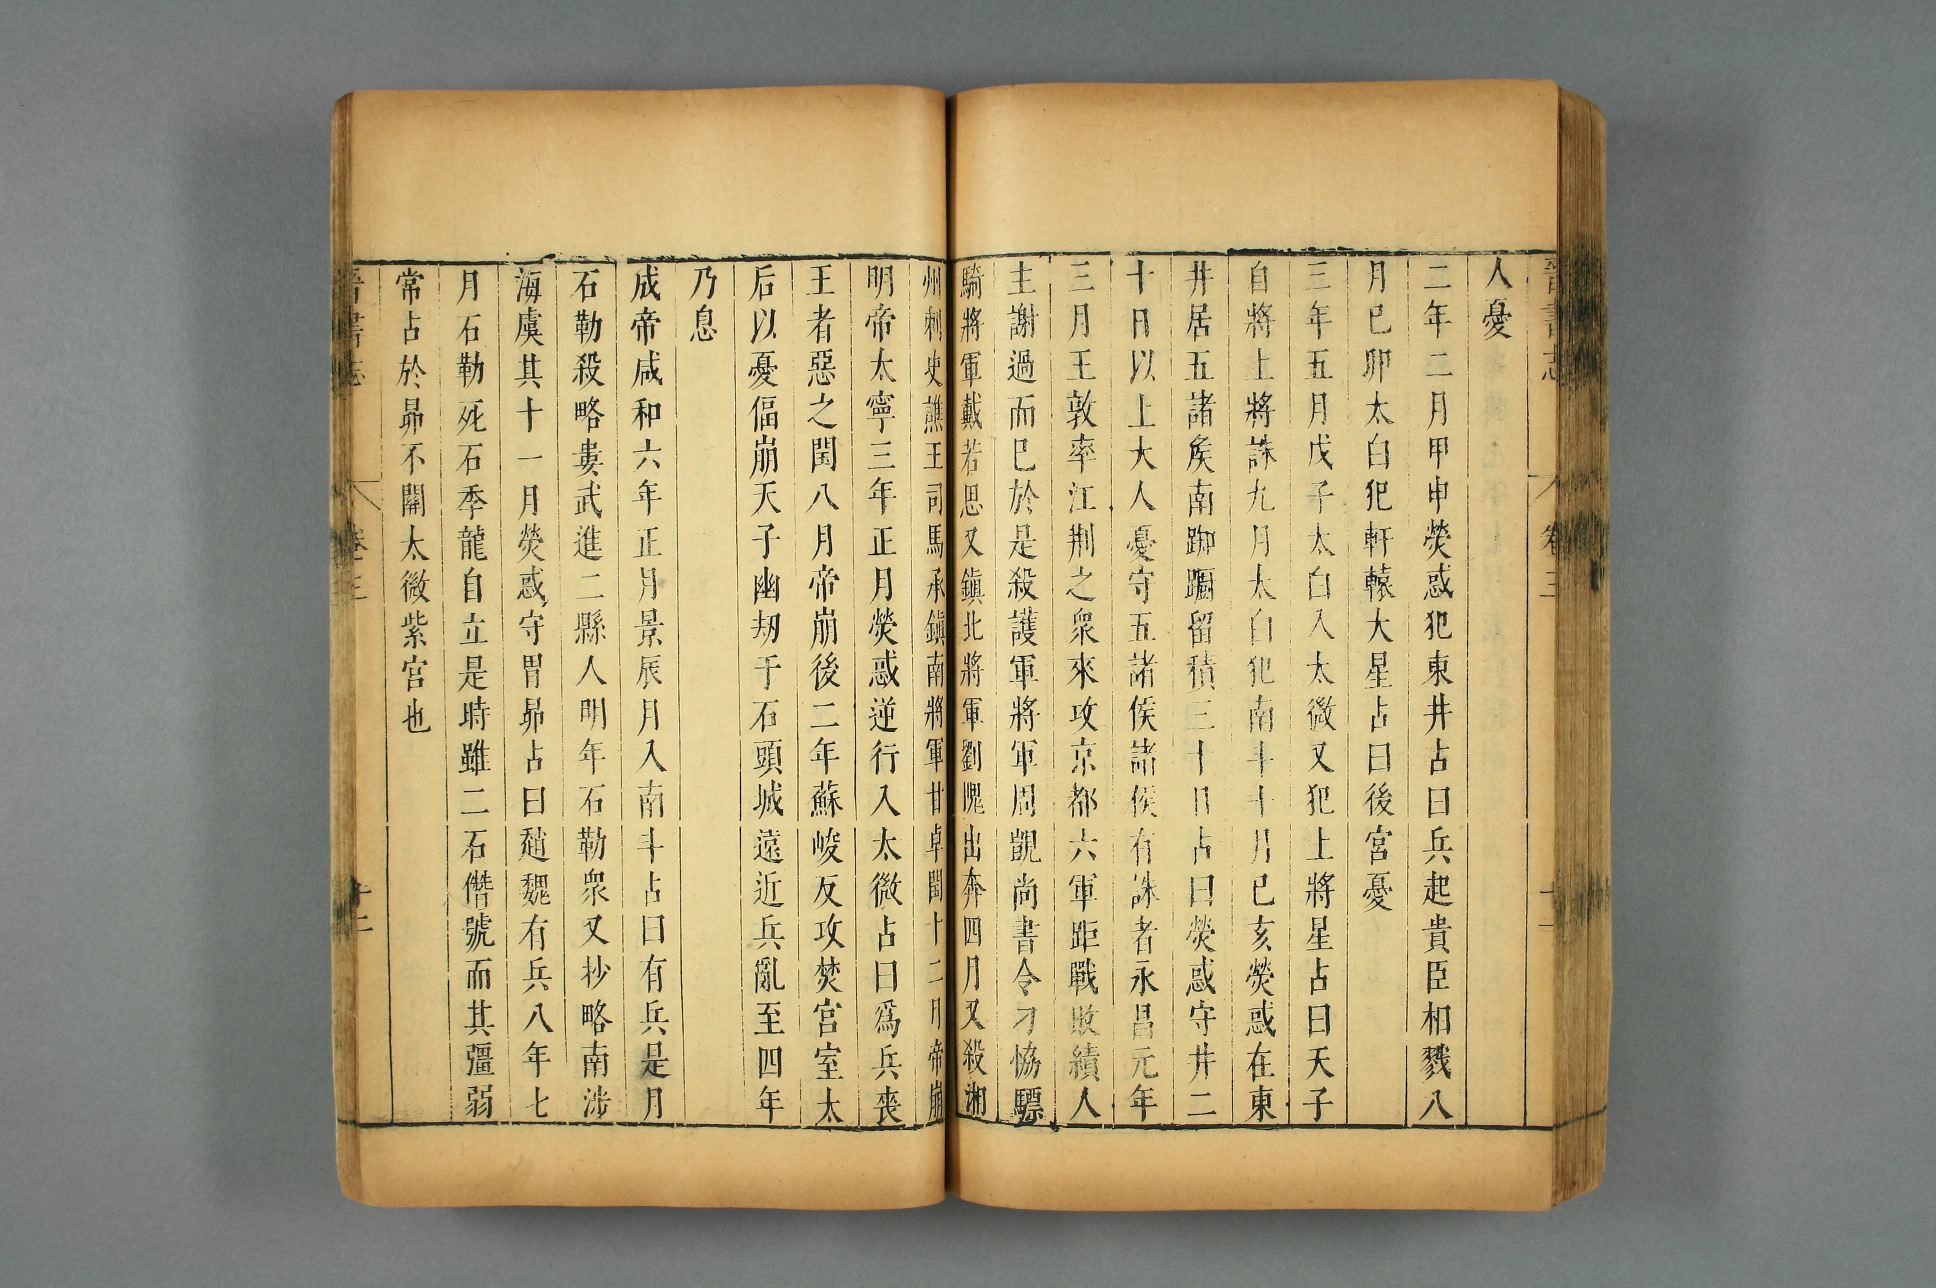 晉書志 卷三
人憂
二年二月甲申熒惑犯東井占曰兵起貴臣相戮八
月已卯太白犯軒轅大星占曰後宮憂
三年五月戊子太白入太微又犯上將星占曰天子
自將上將誅九月太白犯南斗十月已亥熒惑在東
井居五諸矦南踟躕留積三十日占曰熒惑守井二
十日以上大人憂守五諸侯諸侯有誅者永昌元年
三月王敦率江荆之衆來攻京都六軍距戰敗績人
主謝過而已於是殺護軍將軍周覬尚書令刁協驃
騎將軍戴若思又鎮北將軍劉隗出奔四月又殺湘
州刺史譙王司馬承鎮南將軍甘卓閏十二月帝崩
明帝太寧三年正月熒惑逆行入太微占曰爲兵喪
王者惡之閏八月帝崩後二年蘇峻反攻焚宮室太
后以憂偪崩天子幽刼于石頭城遠近兵亂至四年
乃息
成帝咸和六年正月景辰月入南斗占曰有兵是月
石勒殺略婁武進二縣人明年石勒衆又抄略南涉
海虞其十一月熒惑守胃昴占曰趙魏有兵八年七
月石勒死石季龍自立是時雖二石僭號而其彊弱
常占於昴不關太微紫宮也
晉書志 卷三 十二